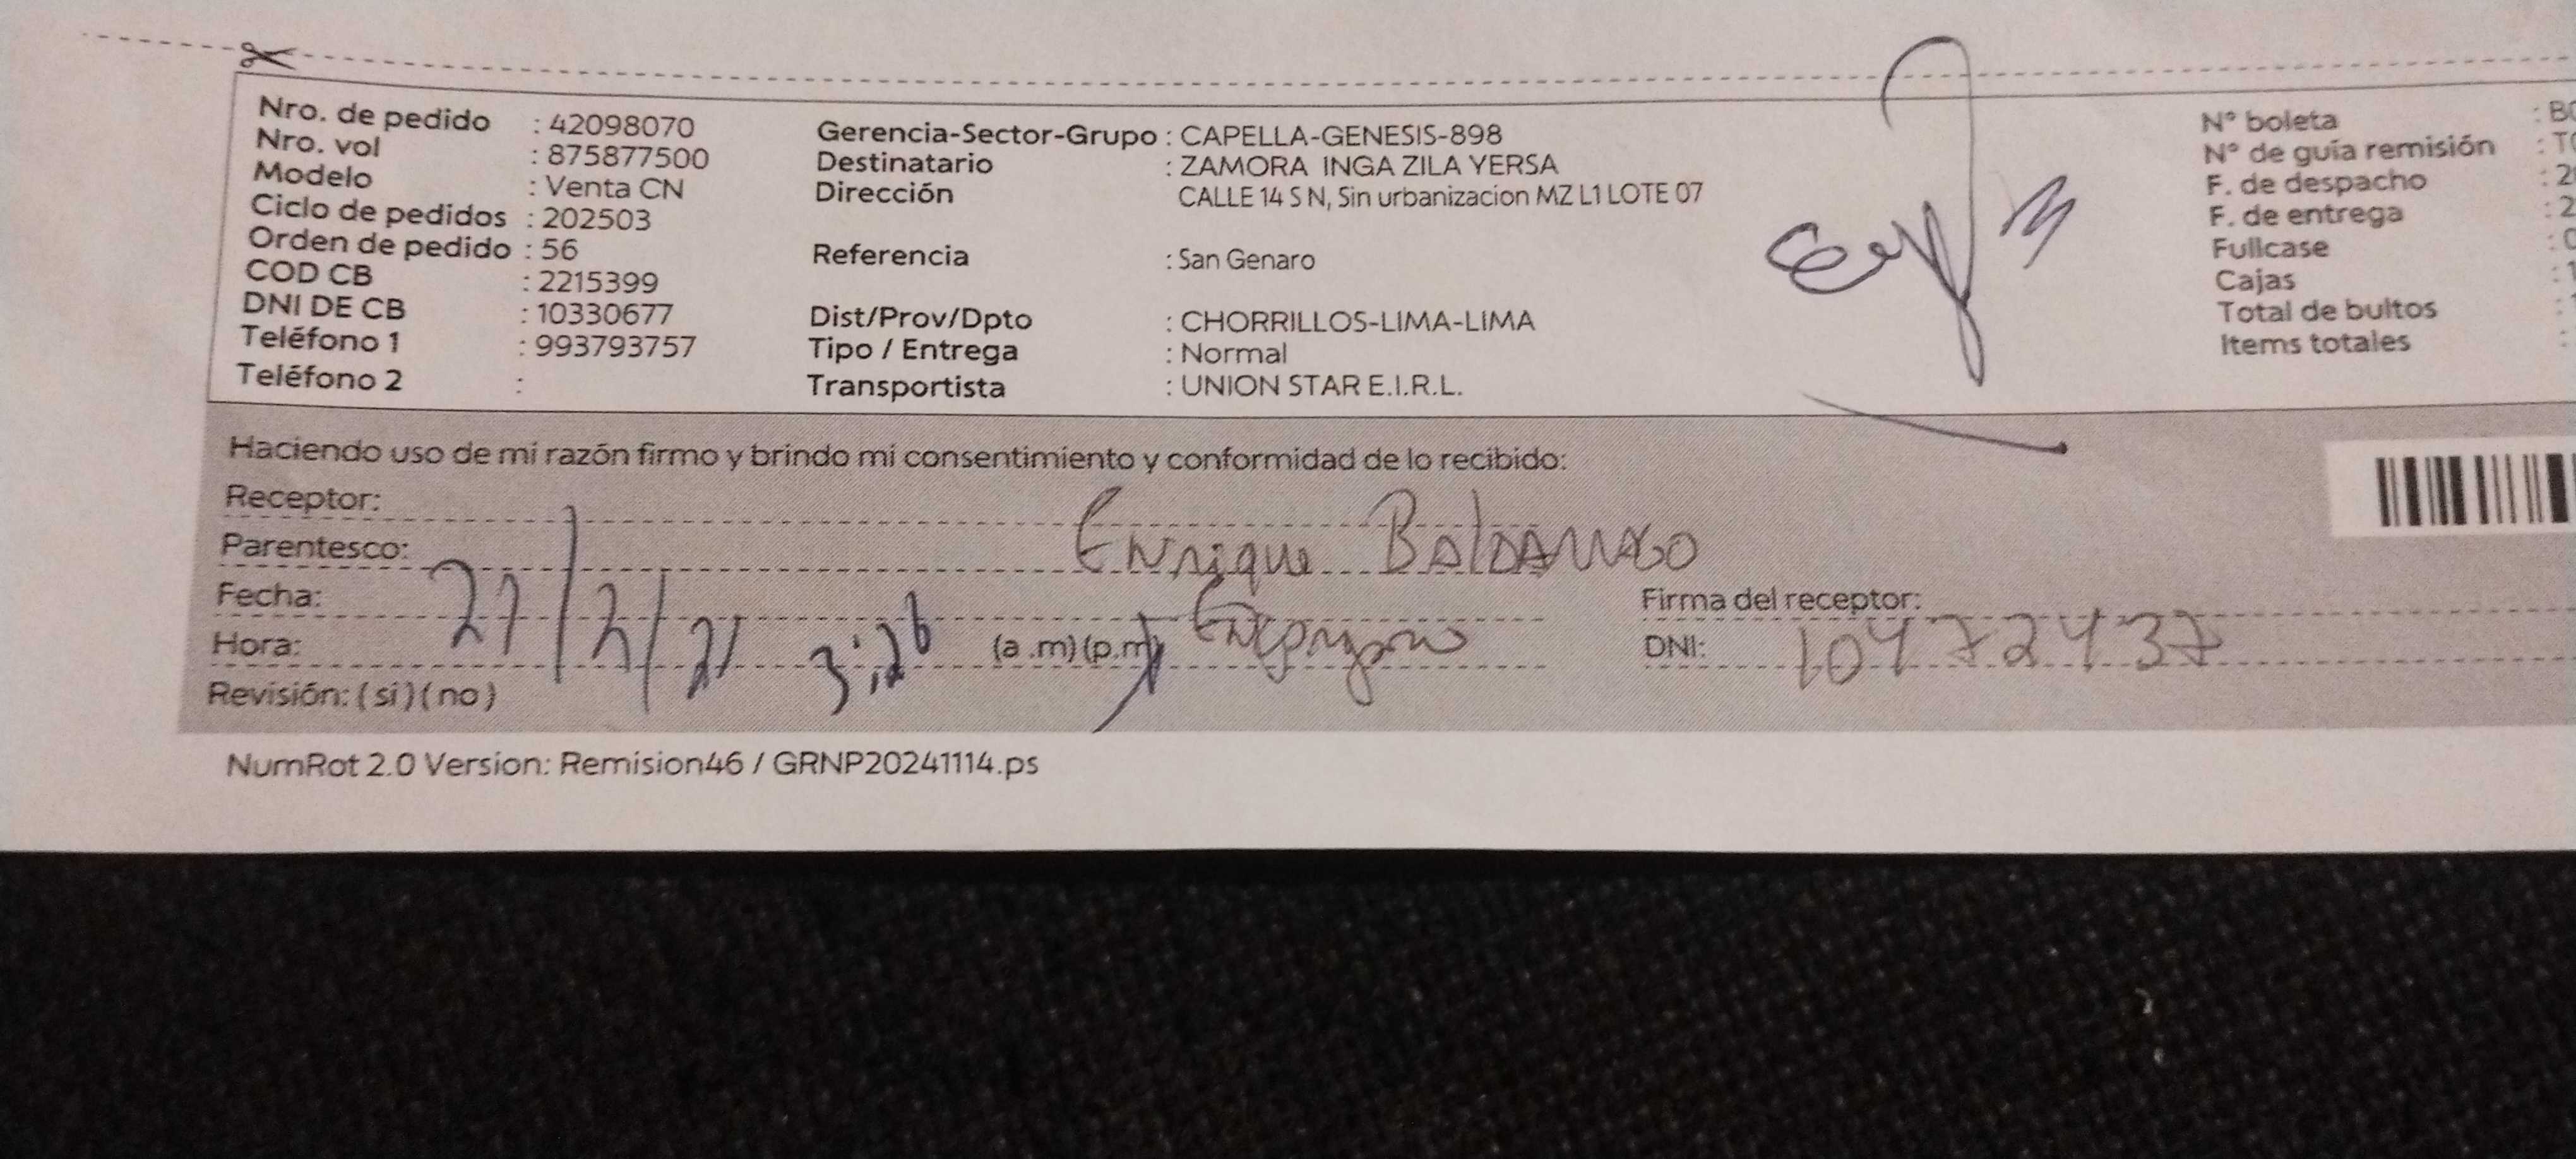 Nro. de pedido : 42098070
Nro. vol : 875877500
Modelo : Venta CN
Ciclo de pedidos : 202503
Orden de pedido : 56
COD CB : 2215399
DNI DE CB : 10330677
Teléfono 1 : 993793757
Teléfono 2 :
Gerencia-Sector-Grupo : CAPELLA-GENESIS-898
Destinatario : ZAMORA INGA ZILA YERSA
Dirección CALLE 14 S N, Sin urbanizacion MZ L1 LOTE 07
Referencia : San Genaro
Dist/Prov/Dpto : CHORRILLOS-LIMA-LIMA
Tipo / Entrega : Normal
Transportista : UNION STAR E.I.R.L.
N° boleta : B
N° de guía remisión : T
F. de despacho : 2
F. de entrega : 2
Fullcase
Cajas : 1
Total de bultos :
Items totales :
Haciendo uso de mi razón firmo y brindo mi consentimiento y conformidad de lo recibido:
Receptor:
Parentesco: Enrique
Fecha: 27/2/
Firma del receptor:
Hora: (a.m)(p.m)
DNI: 10472437
Revisión: (si)(no)
NumRot 2.0 Version: Remision46 / GRNP20241114.ps